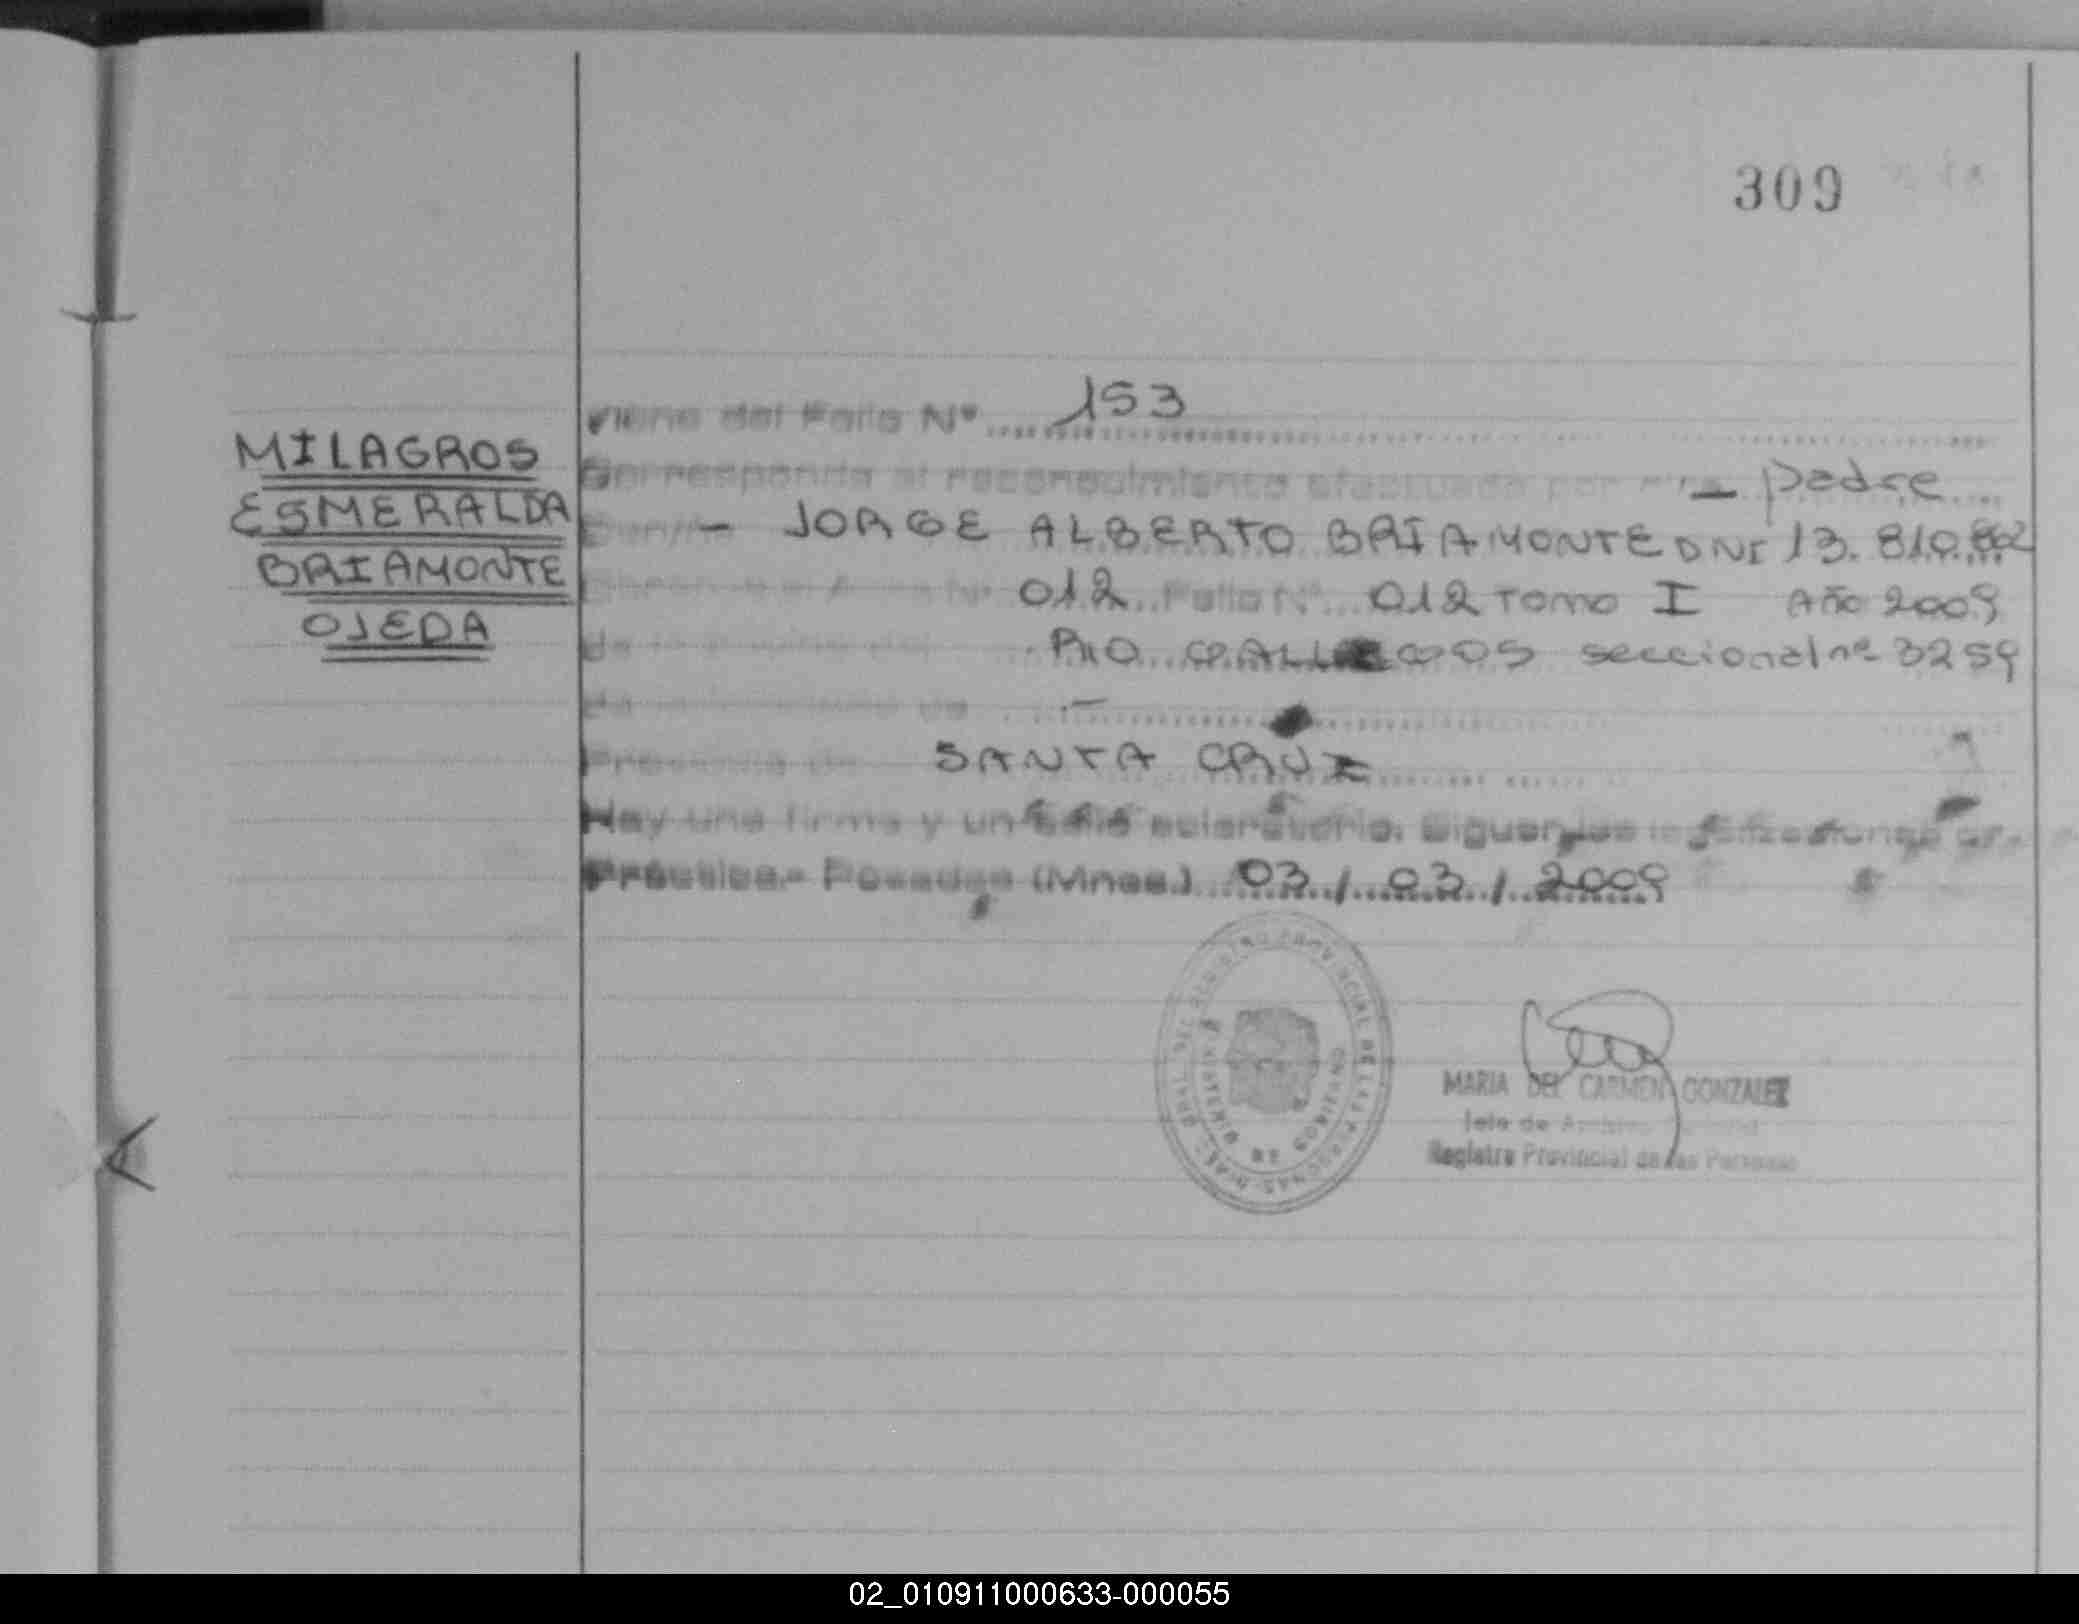 309
MILAGROS
ESMERALDA
BRIAMONTE
OJEDA
Viene del Folio Nº 153
Corresponde al reconocimiento efectuado por — padre
Don/ña — JORGE ALBERTO BRIAMONTE DNI 13.810.802
012 Folio Nº 012 Tomo I Año 2009
RIO GALLEGOS seccional nº 3259
de
SANTA CRUZ
Hay una firma y un sello aclaratorio. Siguen las legalizaciones
Práctica.- Posadas (Mnes.) 03 / 03 / 2009
GRAL. DEL REGISTRO PROVINCIAL DE LAS PERSONAS
MINISTERIO DE GOBIERNO
MARIA DEL CARMEN GONZALEZ
Jefe de Archivo
Registro Provincial de las Personas
02_010911000633-000055